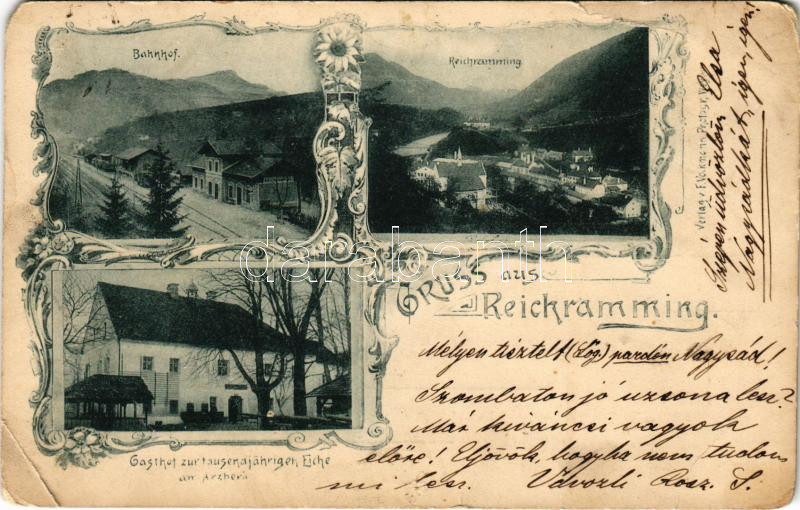 Bahnhof.
Reichramming
GRUSS aus
Reichramming.
Gasthof zur tausendjährigen Eiche
am Arzberg
darabanth
Mélyen tisztelt (Lóg) pardón Nagysád!
Szombaton jó uzsona lesz?
Már kiváncsi vagyok
előre! Eljövök, hogyha nem tudom
mi lesz. Üdvözli Rosz. S.
Szépen üdvözlöm Elsa
Nagysádkát, igen, igen!